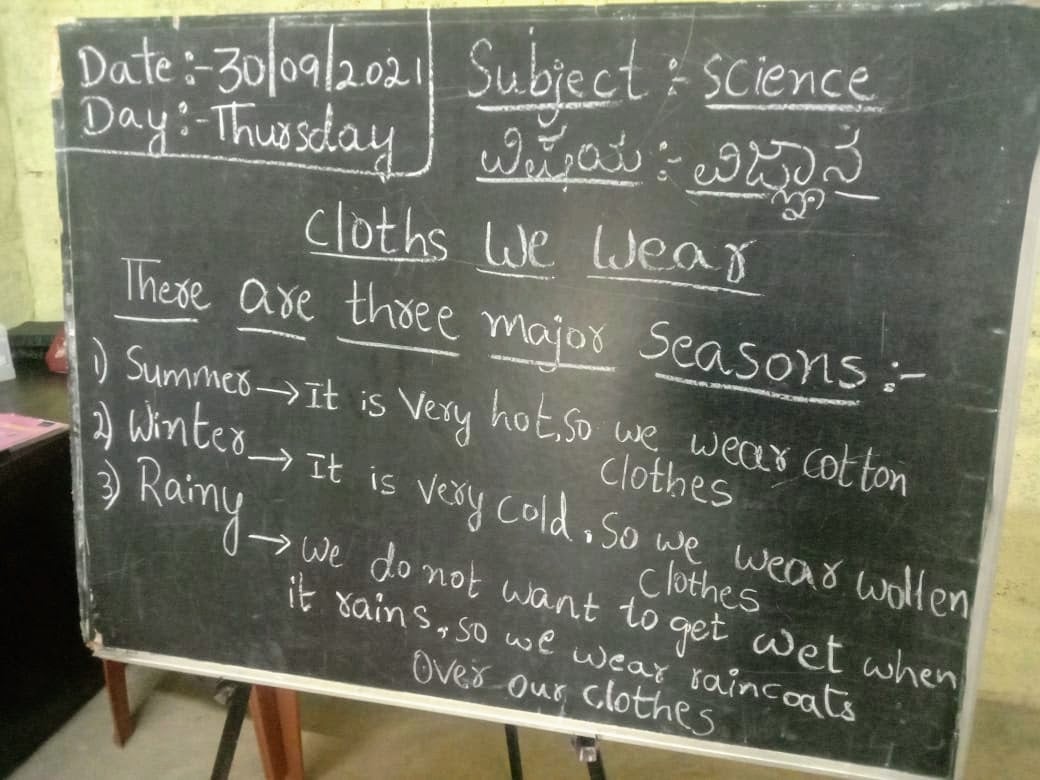 Date:-30/09/2021
Day:-Thursday
Subject:-science
ವಿಷಯ:-ವಿಜ್ಞಾನ
Cloths We Wear
There are three major Seasons:-
1) Summer→It is Very hot,So we wear cotton
Clothes
2) Winter→ It is very cold,So we wear wollen
Clothes
3) Rainy→We do not want to get wet when
it rains,so we wear raincoats
Over our clothes